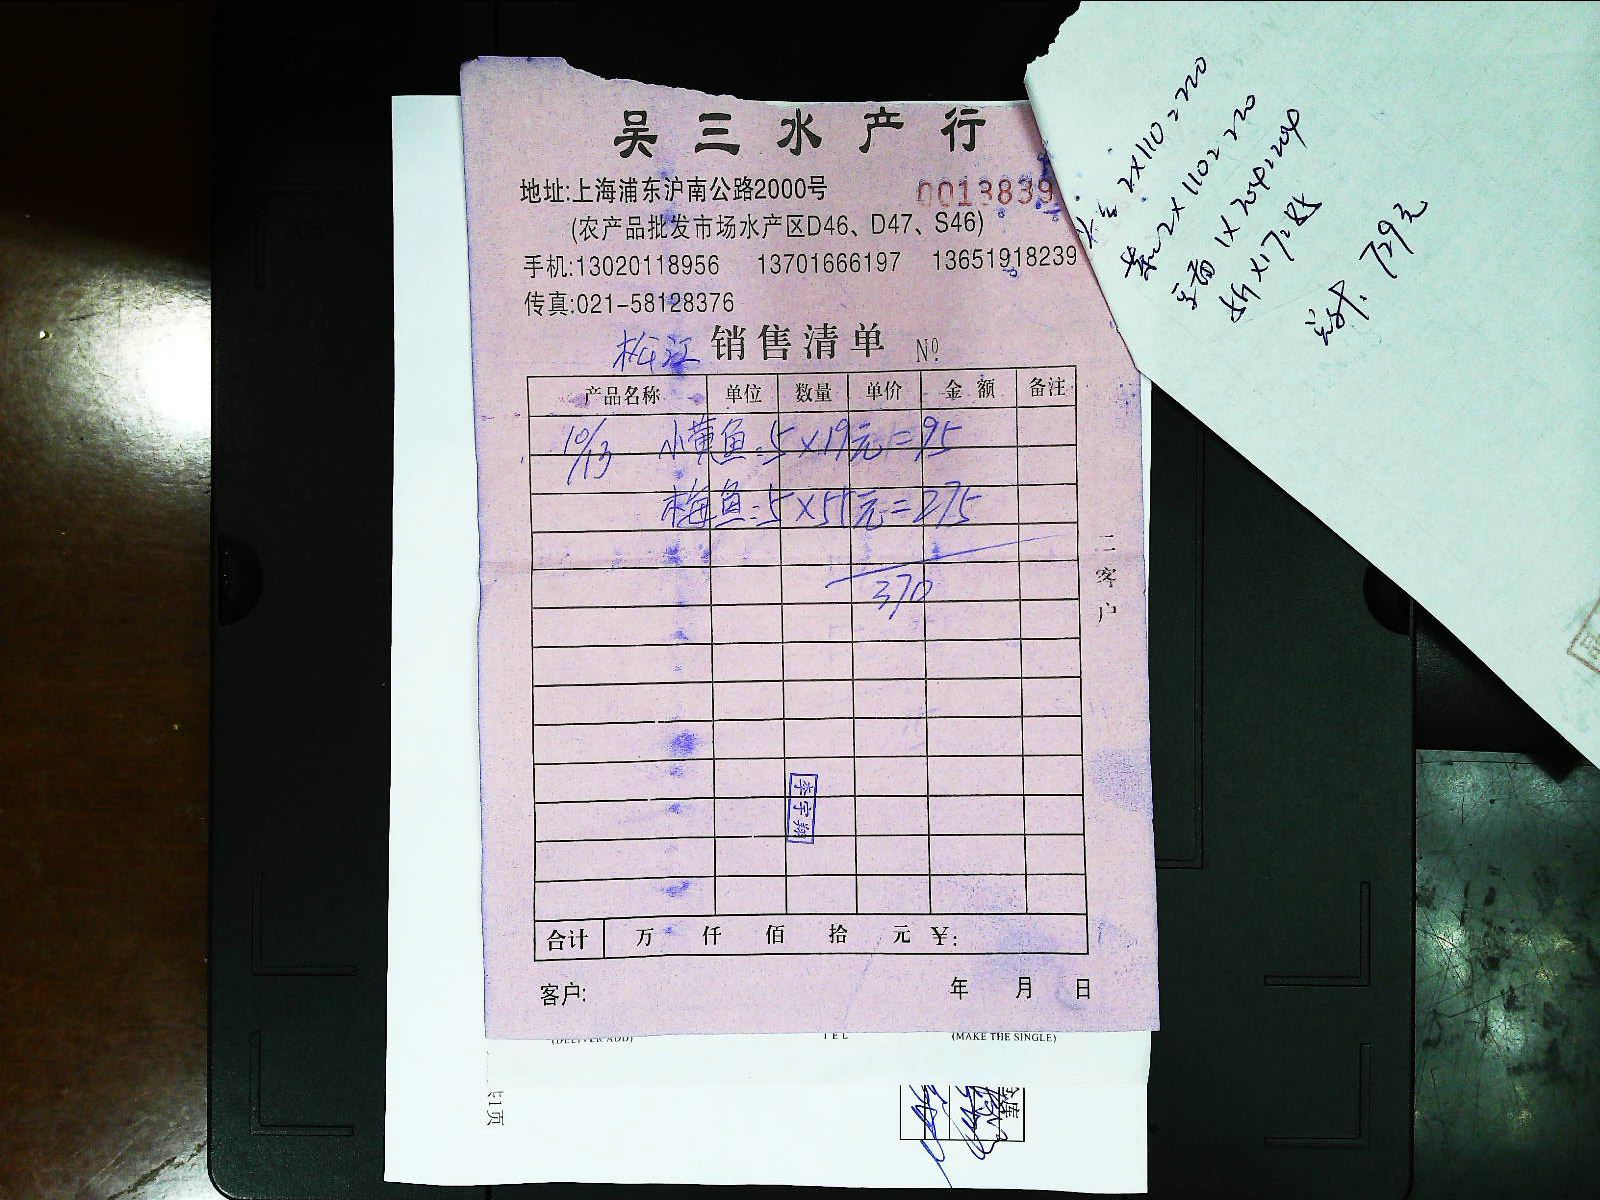 吴三水产行
地址:上海浦东沪南公路2000号
0013839
(农产品批发市场水产区D46、D47、S46)
手机:13020118956 13701666197 13651918239
传真:021-58128376
松江 销售清单 Nº
产品名称 单位 数量 单价 金额 备注
10/13 小黄鱼:5×19元=95
梅鱼:5×55元=275
370
二客户
李宇翔
合计 万 仟 佰 拾 元 ¥:
客户: 年 月 日
(DELIVER ADD) TEL (MAKE THE SINGLE)
共1页
2×110=220
2×110=220
1×204=204
×17=85
729元